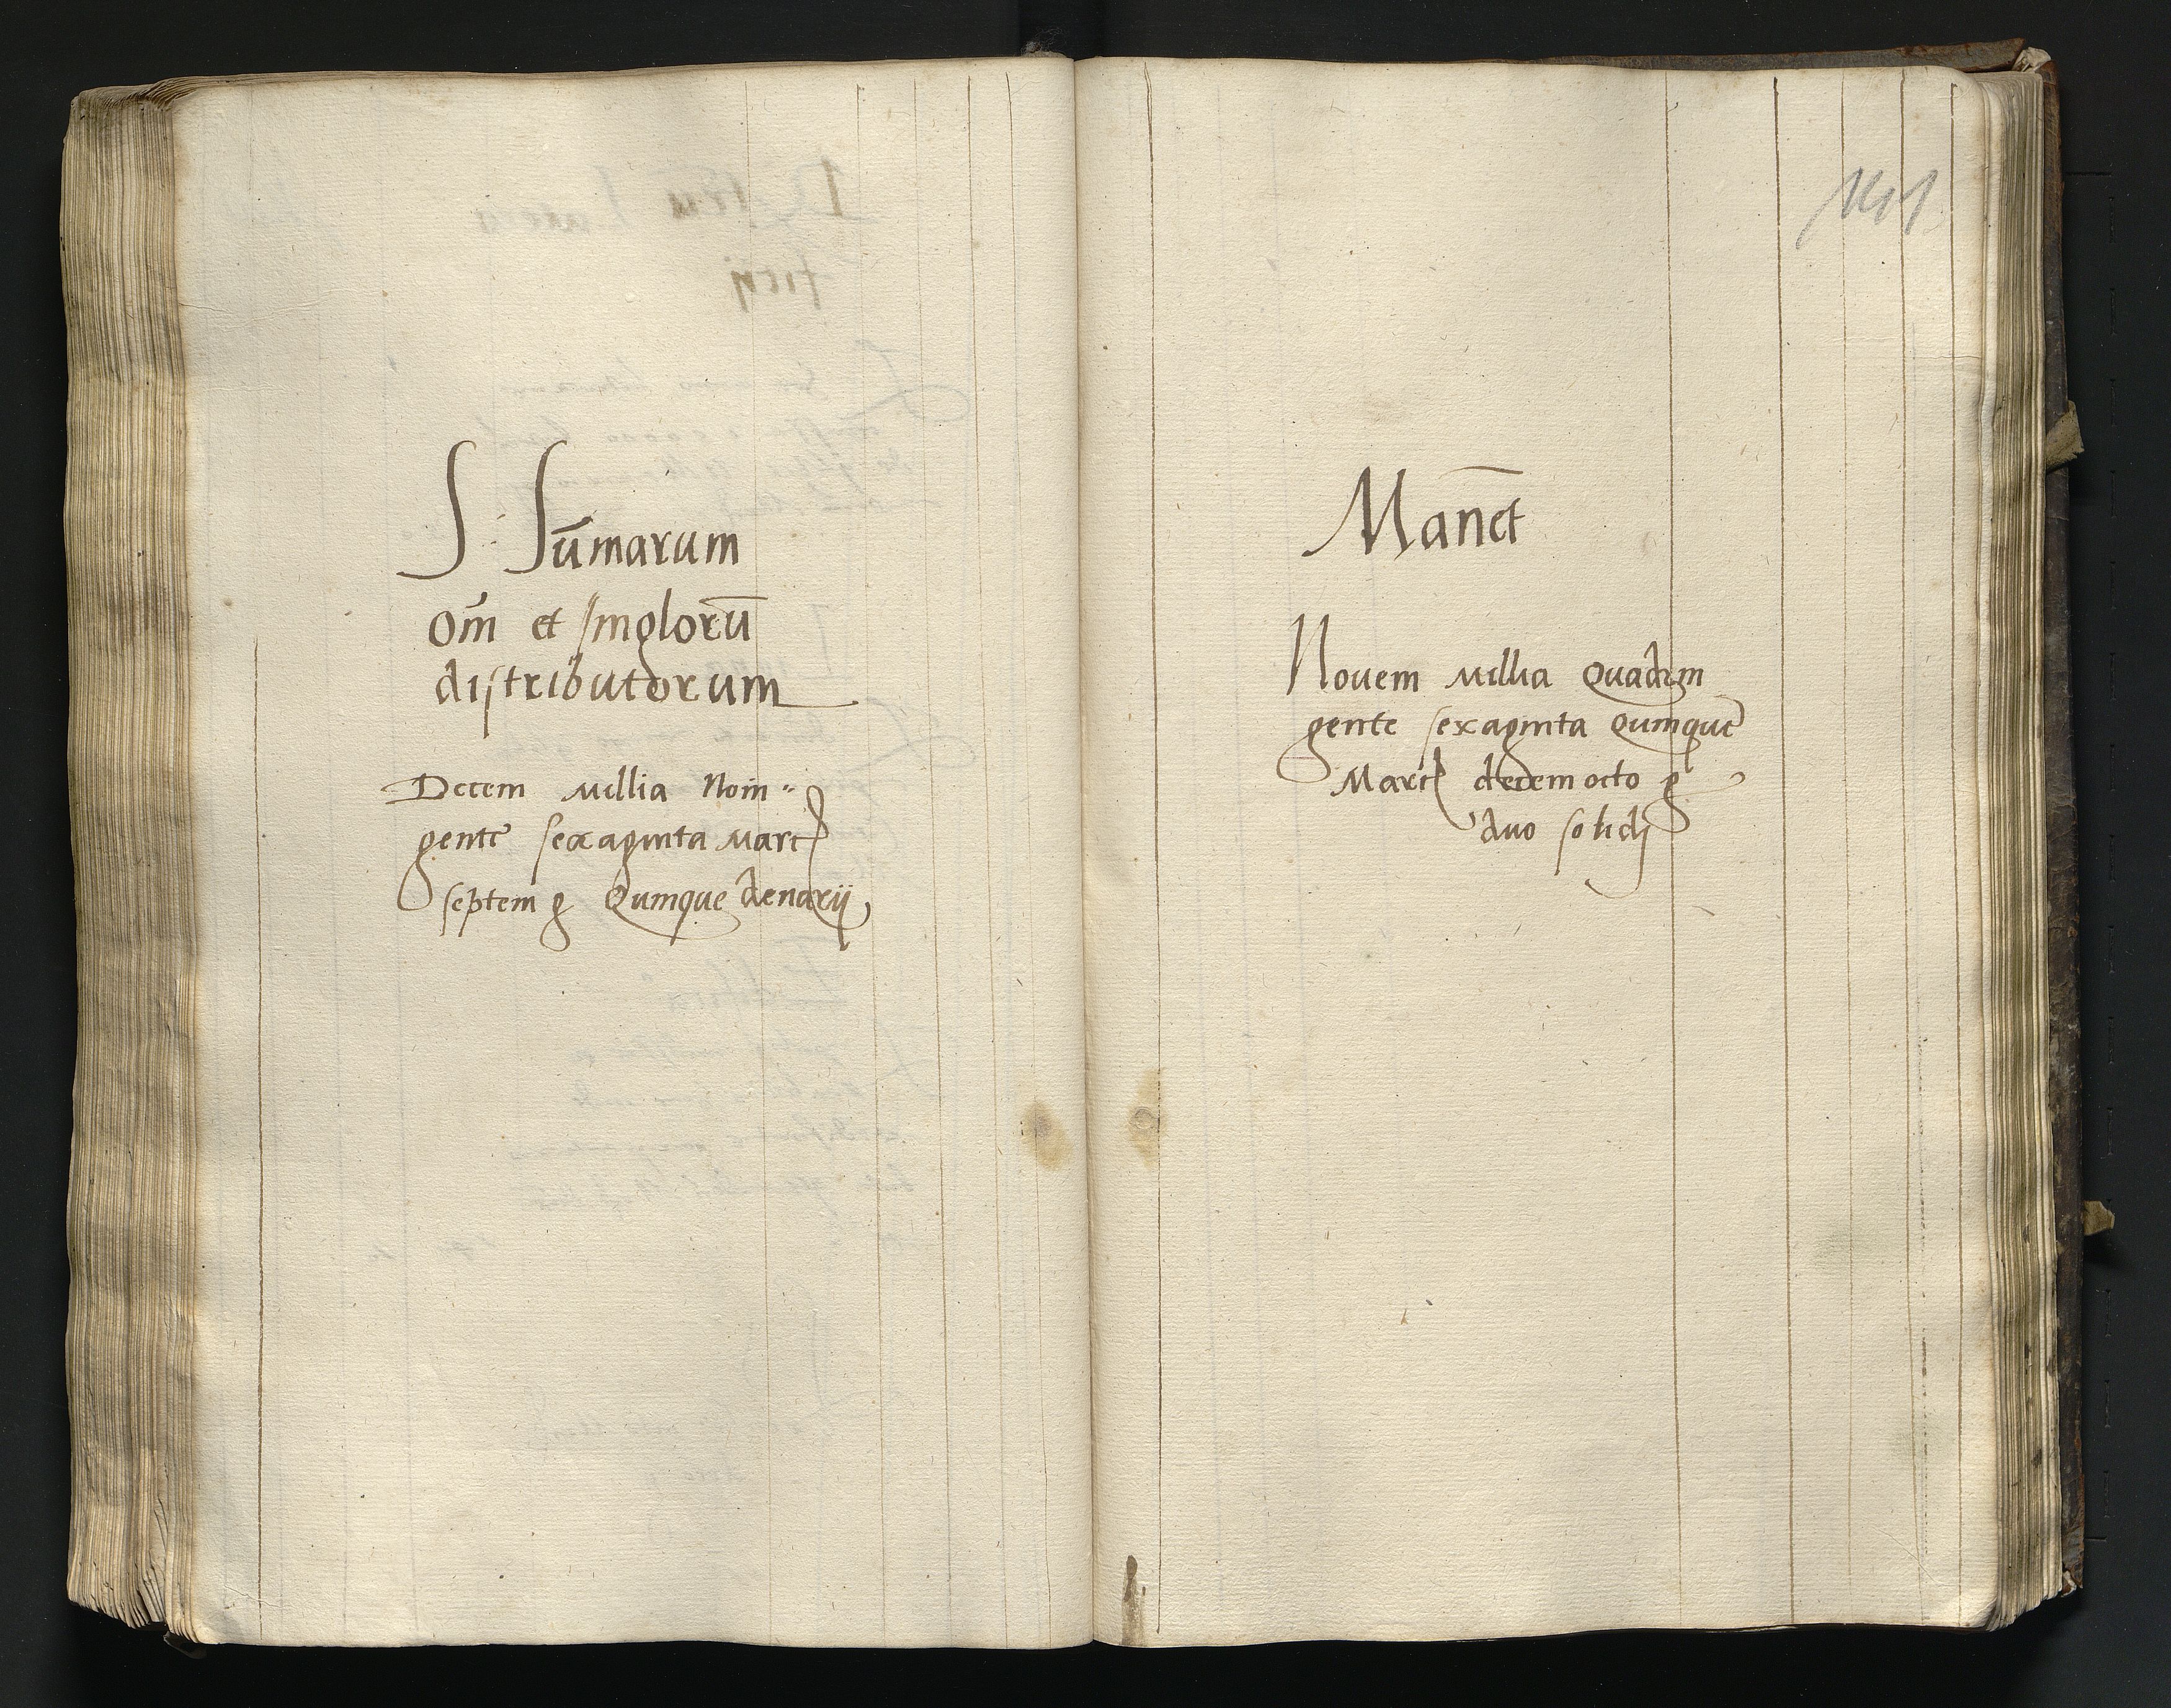 S: Sūmarum
Om̄ et singlorū
distributorum
Decem Millia Noin-
gente sexaginta Marc
septem g Quinque denarij
Manēt
Novem Millia Quadrin
gente sexaginta Quinque
Marc decem octo g
duo solidj